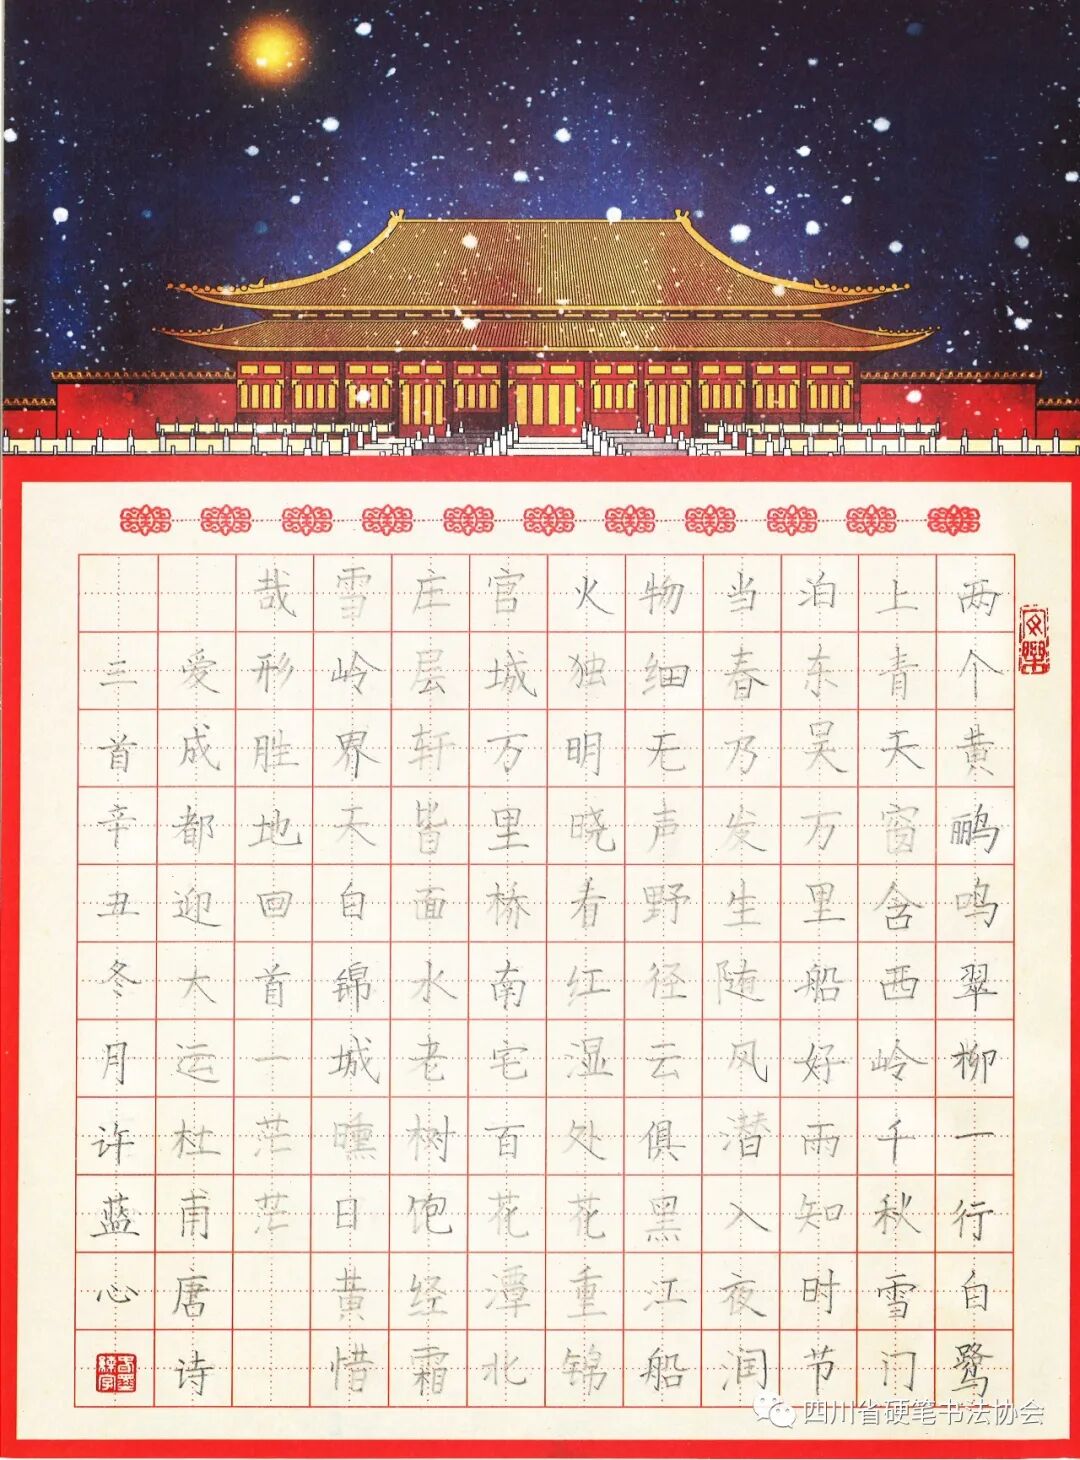 两个黄鹂鸣翠柳一行白鹭
上青天窗含西岭千秋雪门
泊东吴万里船好雨知时节
当春乃发生随风潜入夜润
物细无声野径云俱黑江船
火独明晓看红湿处花重锦
官城万里桥南宅百花潭北
庄层轩皆面水老树饱经霜
雪岭界天白锦城曛日黄惜
哉形胜地回首一茫茫
爱成都迎大运杜甫唐诗
三首辛丑冬月许蓝心
四川省硬笔书法协会